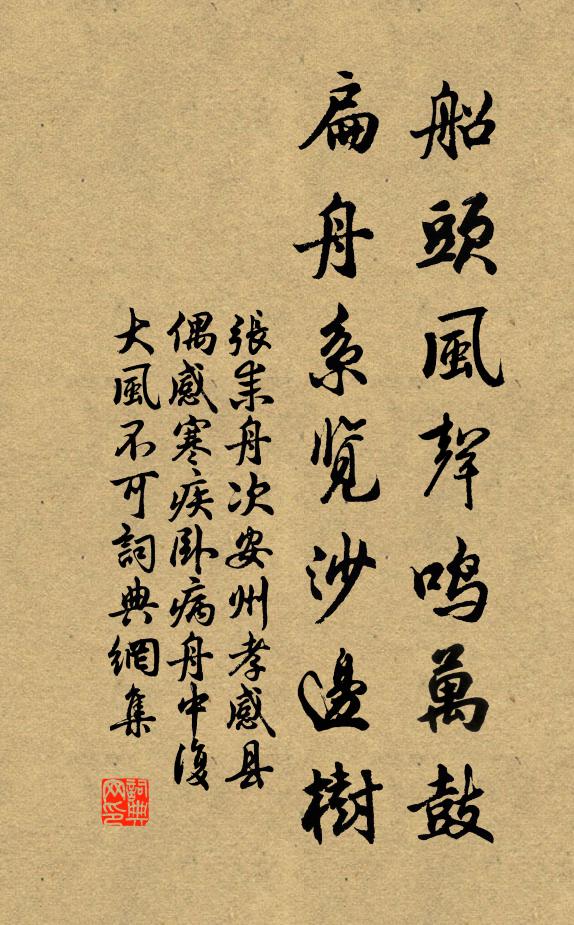 船頭風聲鳴萬鼓
扁舟系覽沙邊樹
張耒舟次安州孝感县
偶感寒疾卧病舟中復
大風不可詞典網集
詞典网印